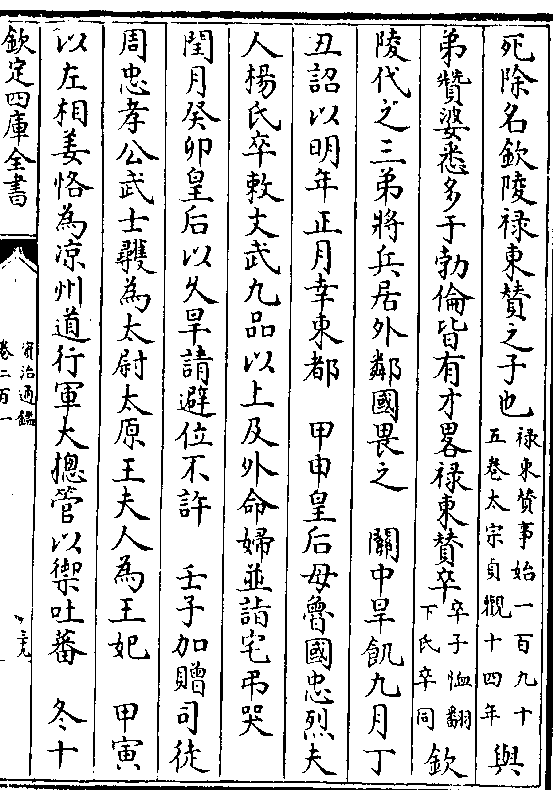 死除名欽陵禄東賛之子也禄東賛事始一百九十五卷太宗貞觀十四年與
弟賛婆悉多于勃倫皆有才畧禄東賛卒卒子恤翻下氏卒同欽
陵代之三弟將兵居外鄰國畏之 關中旱飢九月丁
丑詔以明年正月幸東都 甲申皇后母魯國忠烈夫
人楊氏卒敕文武九品以上及外命婦並詣宅弔哭
閏月癸卯皇后以久旱請避位不許 壬子加贈司徒
周忠孝公武士彠為太尉太原王夫人為王妃 甲寅
以左相姜恪為凉州道行軍大摠管以禦吐蕃 冬十
欽定四庫全書
資治通鑑
卷二百一